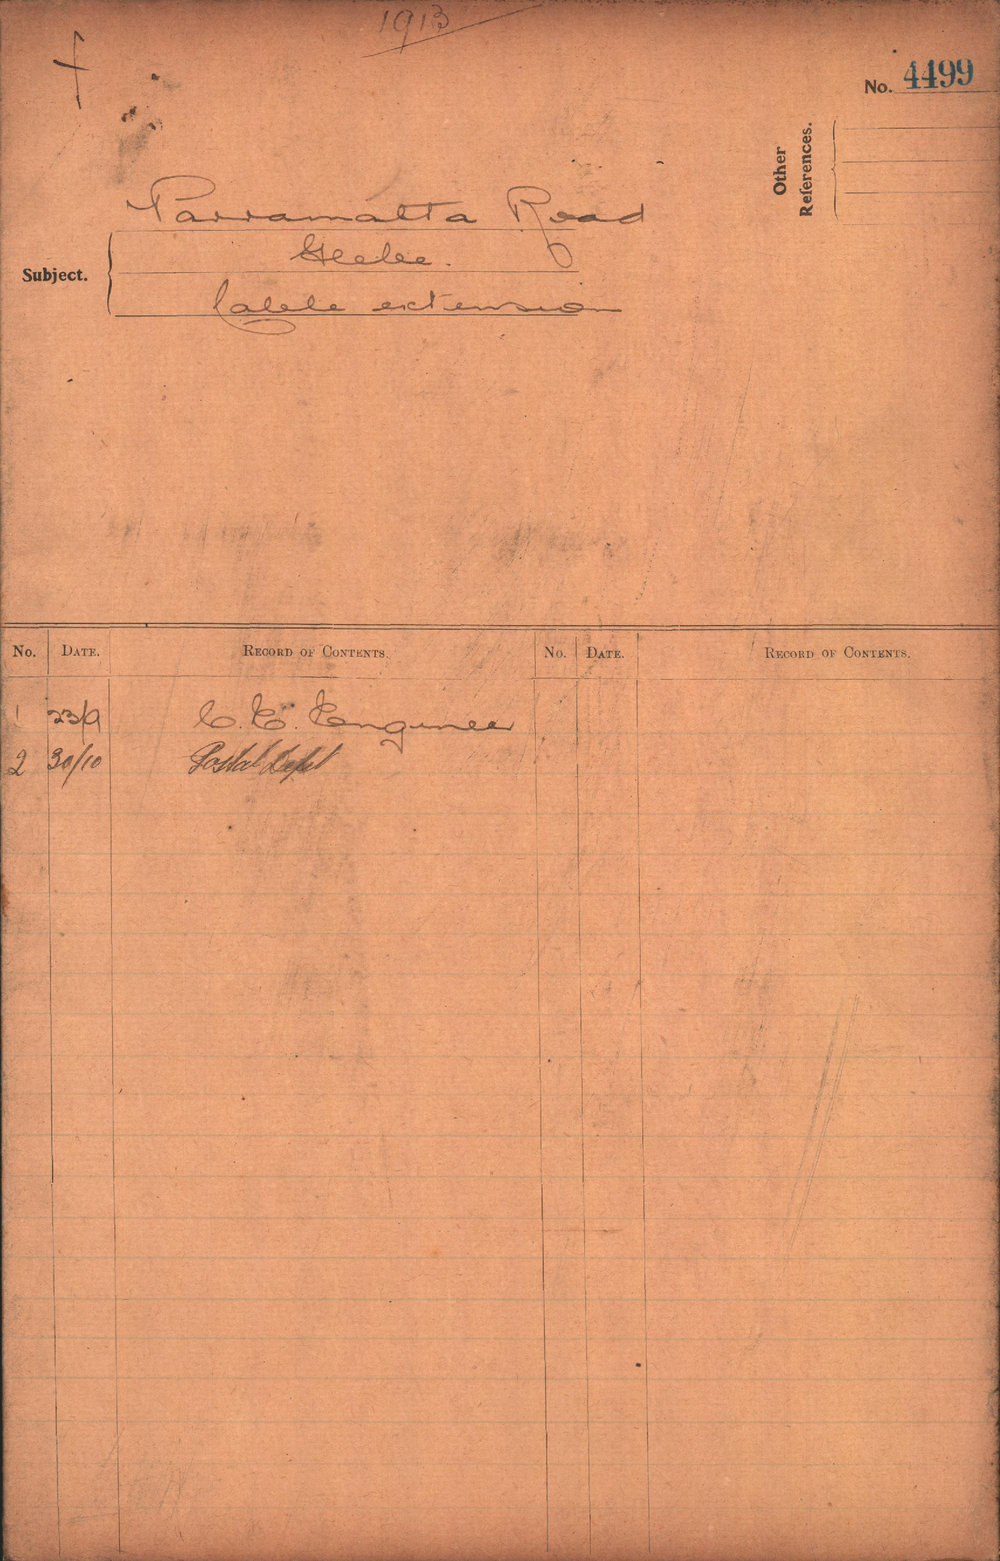 1913
No. 4499
Other
References.
Parramatta Road
Subject.
Glebe.
Cable extension
No. DATE. RECORD OF CONTENTS. No. DATE. RECORD OF CONTENTS.
1 23/9 C. E. Engineer
2 30/10 Postal Dept